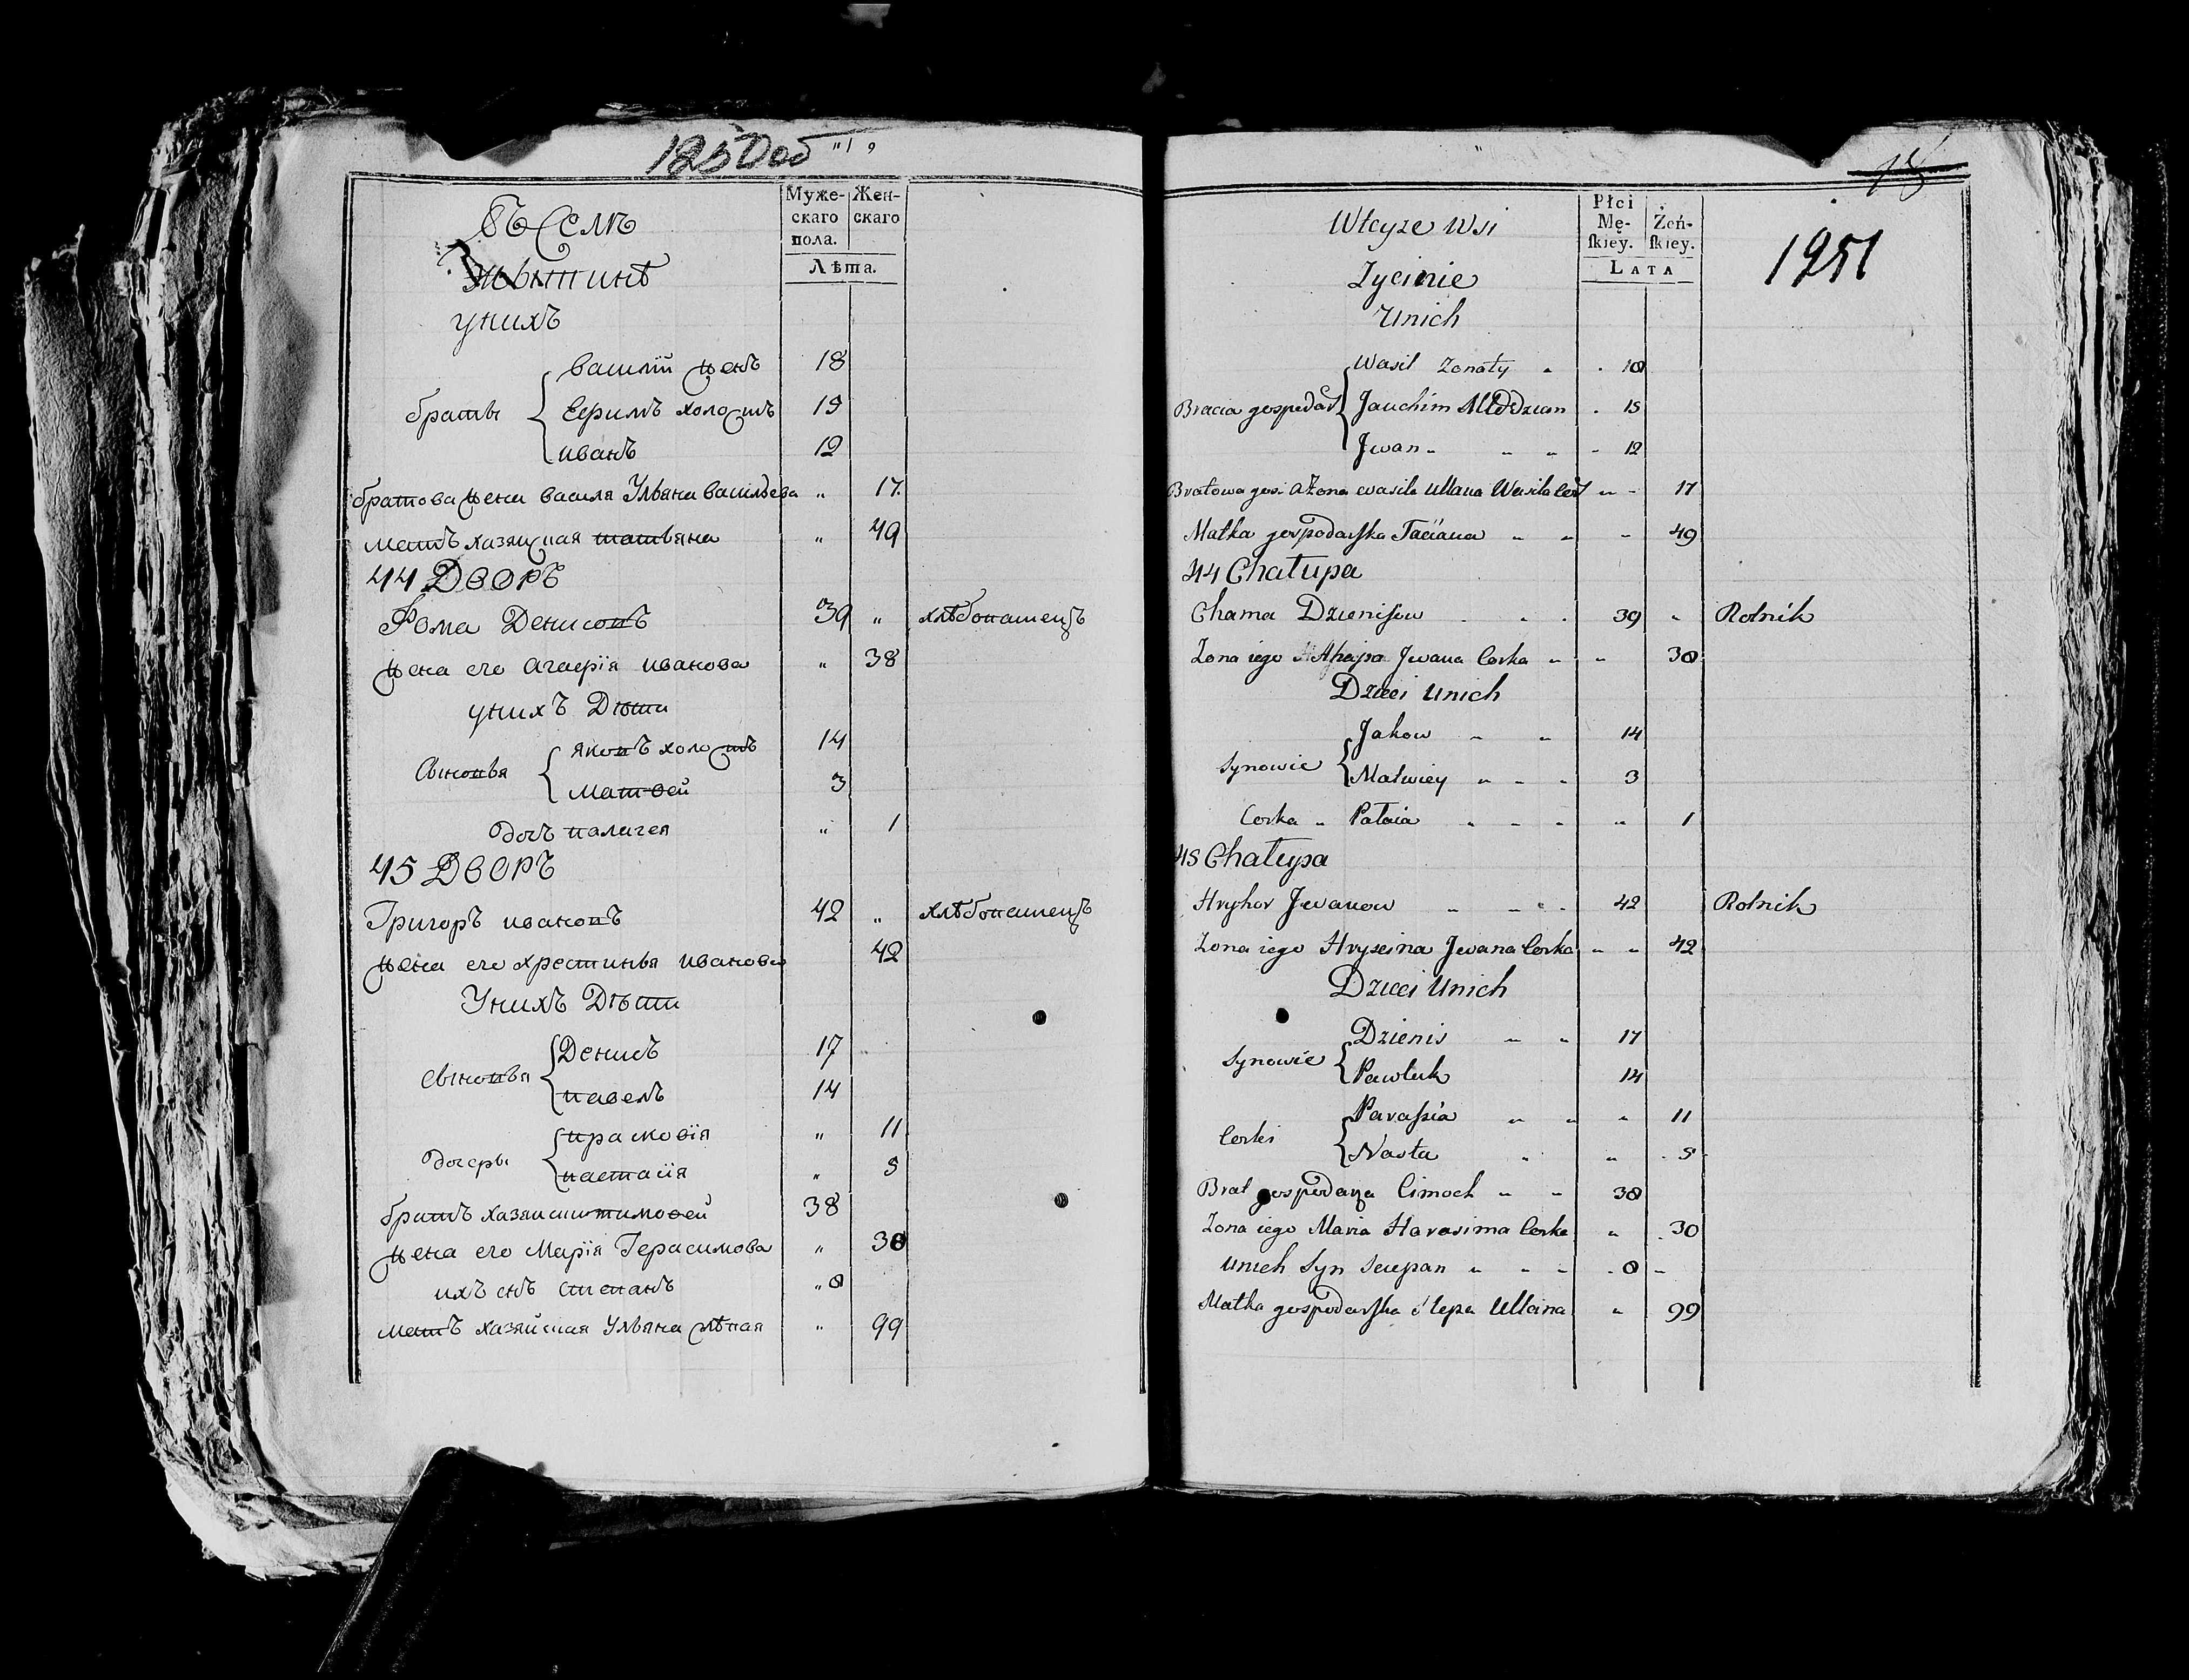 1250 об
Муже-
скаго
пола.
Жен-
скаго
Лѣта.
Въ Селѣ
Жытинѣ
у нихъ
браты
василій женъ 18
Ефимъ холостъ 15
иванъ 12
братова жена василя Ульяна васильева " 17
мать хазяйская татьяна " 49
44 Дворъ
Фома Денисовъ 39 " хлѣбопашецъ
жена его Агафія иванова " 38
у нихъ Дѣти
Сыновья
яковъ холостъ 14
матвей 3
дочъ палагея " 1
45 Дворъ
Григоръ ивановъ 42 " хлѣбопашецъ
жена его хрестинья иванова 42
У нихъ Дѣти
Сыновья
Денисъ 17
павелъ 14
дочеры
прасковія " 11
настасія " 5
братъ хазяина тимофей 38
жена его Марія Герасимова " 30
ихъ снъ степанъ " 8
мать хазяйская Ульяна слѣпая " 99
1251
Płci
Mę-
skiey.
Żeń-
skiey.
LATA
W teyze Wsi
Zycinie
U nich
Bracia gospodar
Wasil Zonaty 18
Jauchim Młodzian 15
Jwan 12
Bratowa gos: a żona wasila Ullana Wasila Cor 17
Matka gospodarska Taciana 49
44 Chałupa
Chama Dzienisow 39 " Rolnik
Zona iego Ahapa Jwana Corka 38
Dzieci u nich
Synowie
Jakow 14
Matwiey 3
Corka Pałaia 1
45 Chałupa
Hryhor Jwanow 42 Rolnik
Zona iego Hryscina Jwana Corka 42
Dzieci u nich
Synowie
Dzienis 17
Pawluk 14
Corki
Parassia 11
Nasta 5
Brat gospodarza Cimoch 38
Zona iego Maria Harasima Corka 30
u nich Syn Sciepan 8
Matka gospodarska slepa Ullana 99